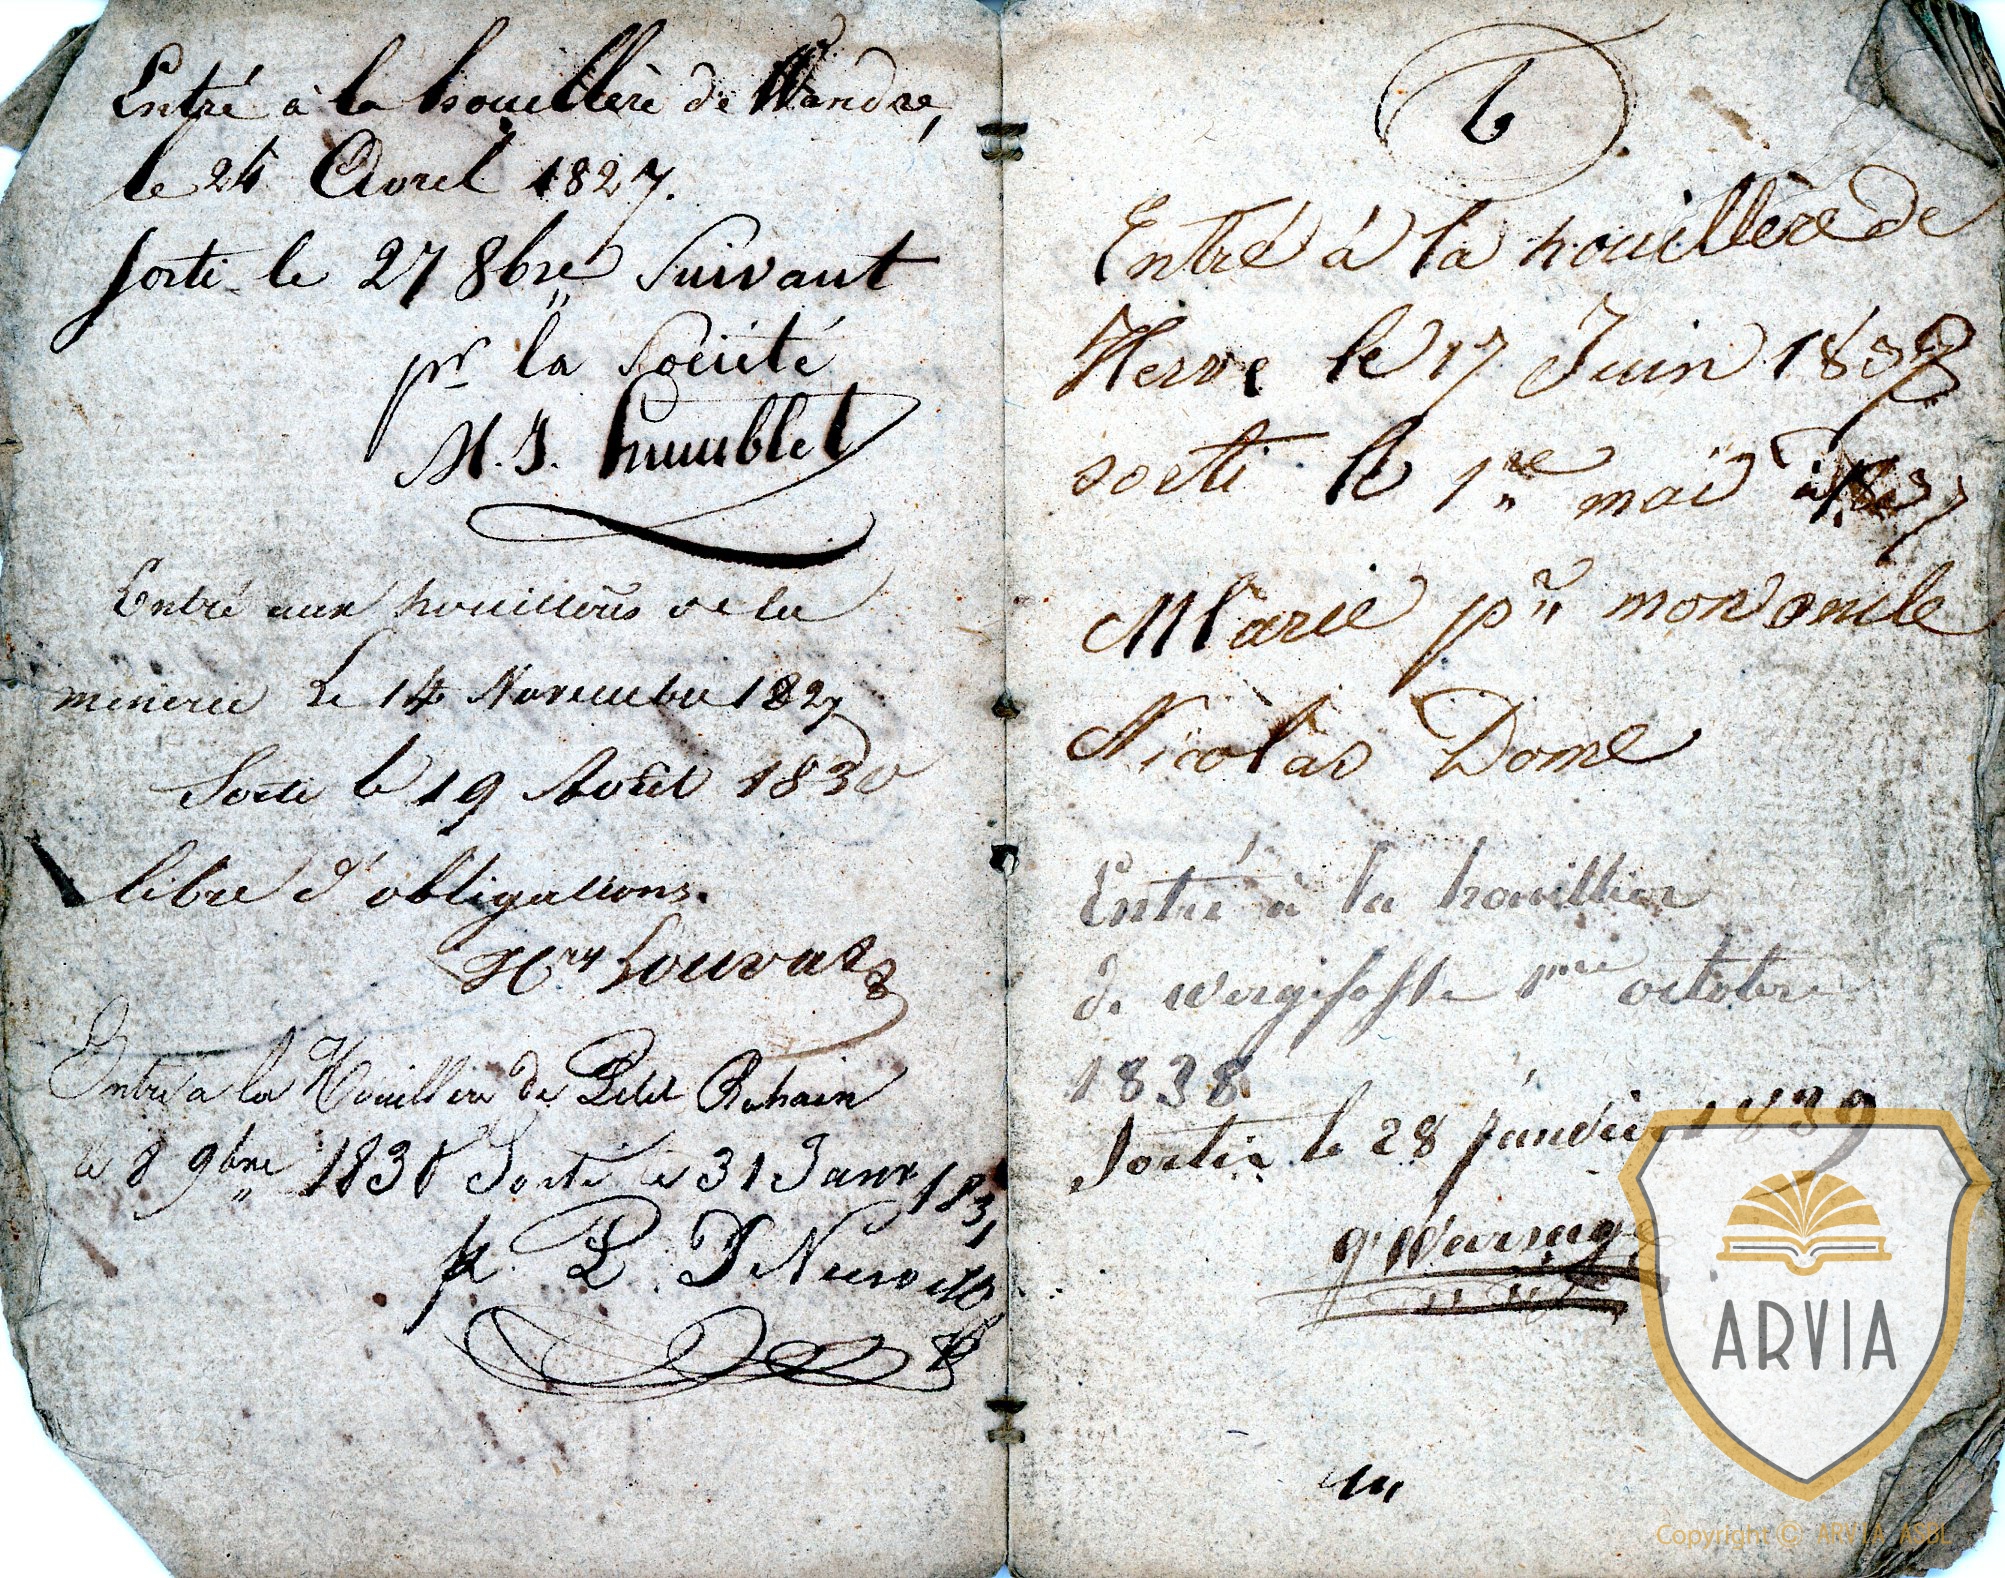 Entré à la houillère de Wandre,
le 24 Avril 1827.
Sorti le 27 8bre Suivant
pr la Société
M. J. humblet
Entré aux houillères de la
minerie Le 14 Novembre 1829
Sorti le 19 Août 1830
libre d'obligations.
Hry Louvat
Entré a la Houillère de Petit Rehain
le 8 9bre 1830 Sorti le 31 Janv 1831
p. P. D
6
Entré à la houillère de
Herve le 17 Juin 1832
sorti le 1re mai 1837
Marie pr mon oncle
Nicolas Dome
Entré à la houillier
de wergifosse 1ere octobre
1838
Sortie le 28 Janvier 1839
ARVIA
Copyright © ARVIA ASBL